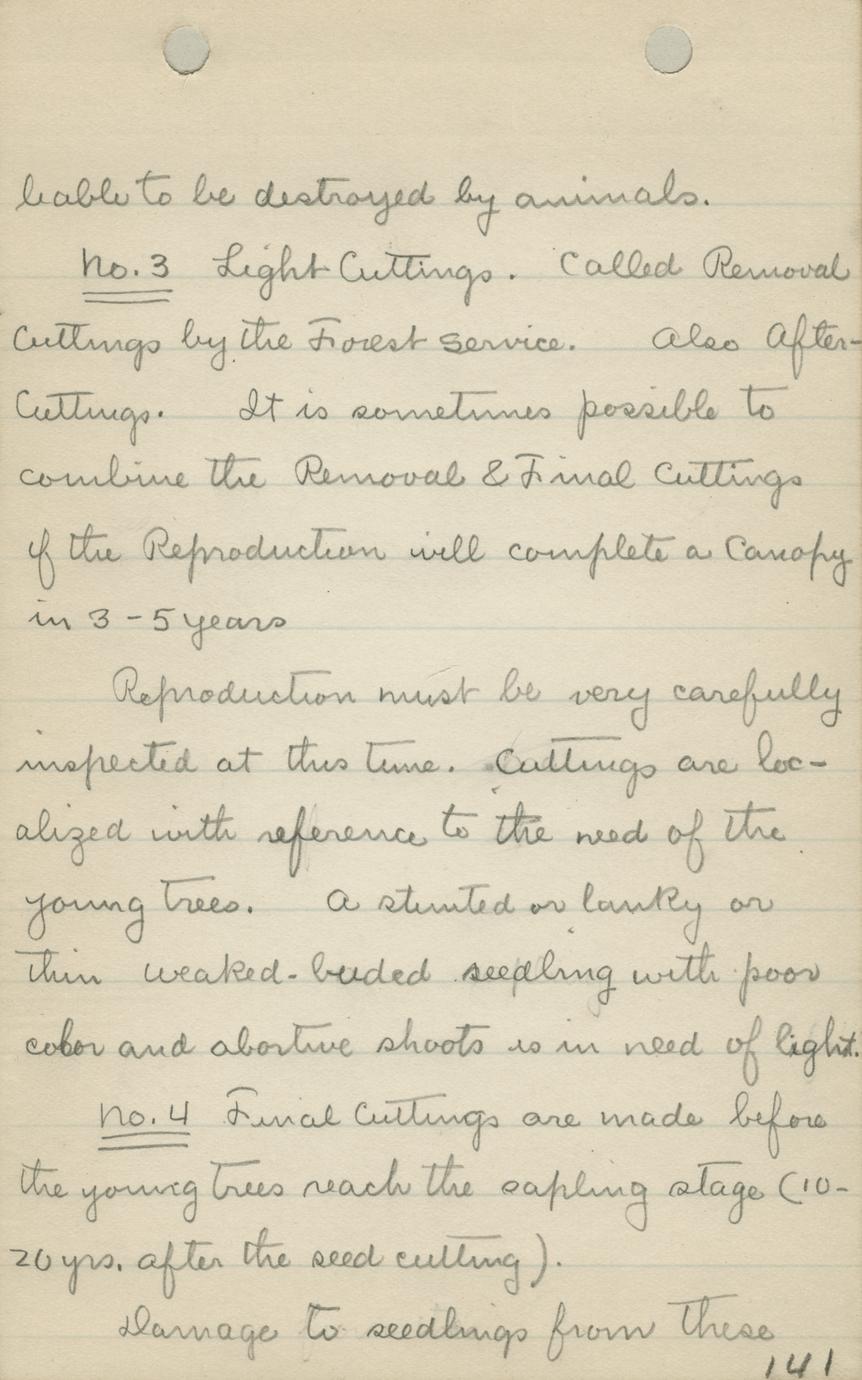 liable to be destroyed by animals.
No. 3 Light Cuttings. Called Removal
Cuttings by the Forest Service. Also After-
Cuttings. It is sometimes possible to
combine the Removal & Final Cuttings
if the Reproduction will complete a Canopy
in 3-5 years
Reproduction must be very carefully
inspected at this time. Cuttings are loc-
alized with reference to the need of the
young trees. A stunted or lanky or
thin weaked-buded seedling with poor
color and abortive shoots is in need of light.
No. 4 Final Cuttings are made before
the young trees reach the sapling stage (10-
20 yrs. after the seed cutting).
Damage to seedlings from these
141